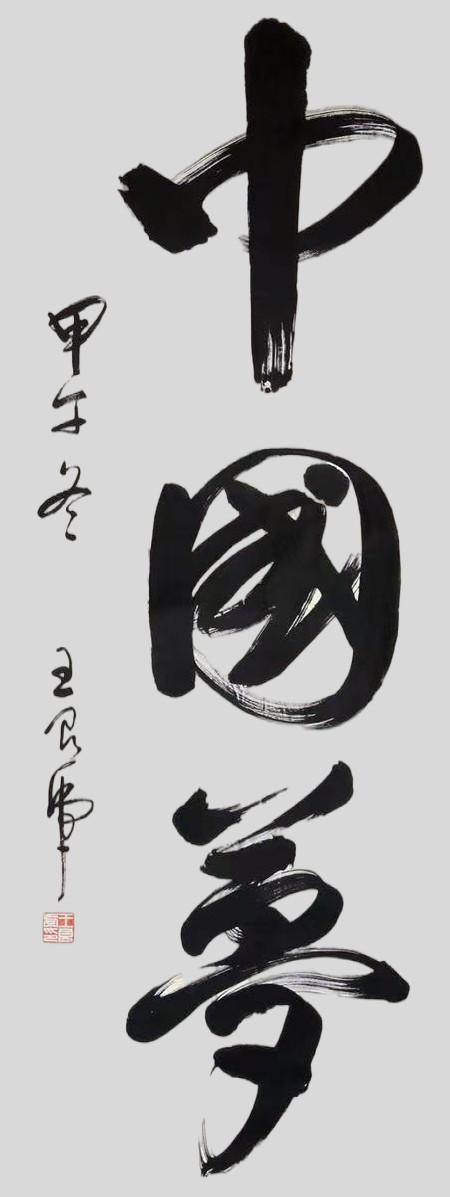 中國夢
甲午冬 王良虎